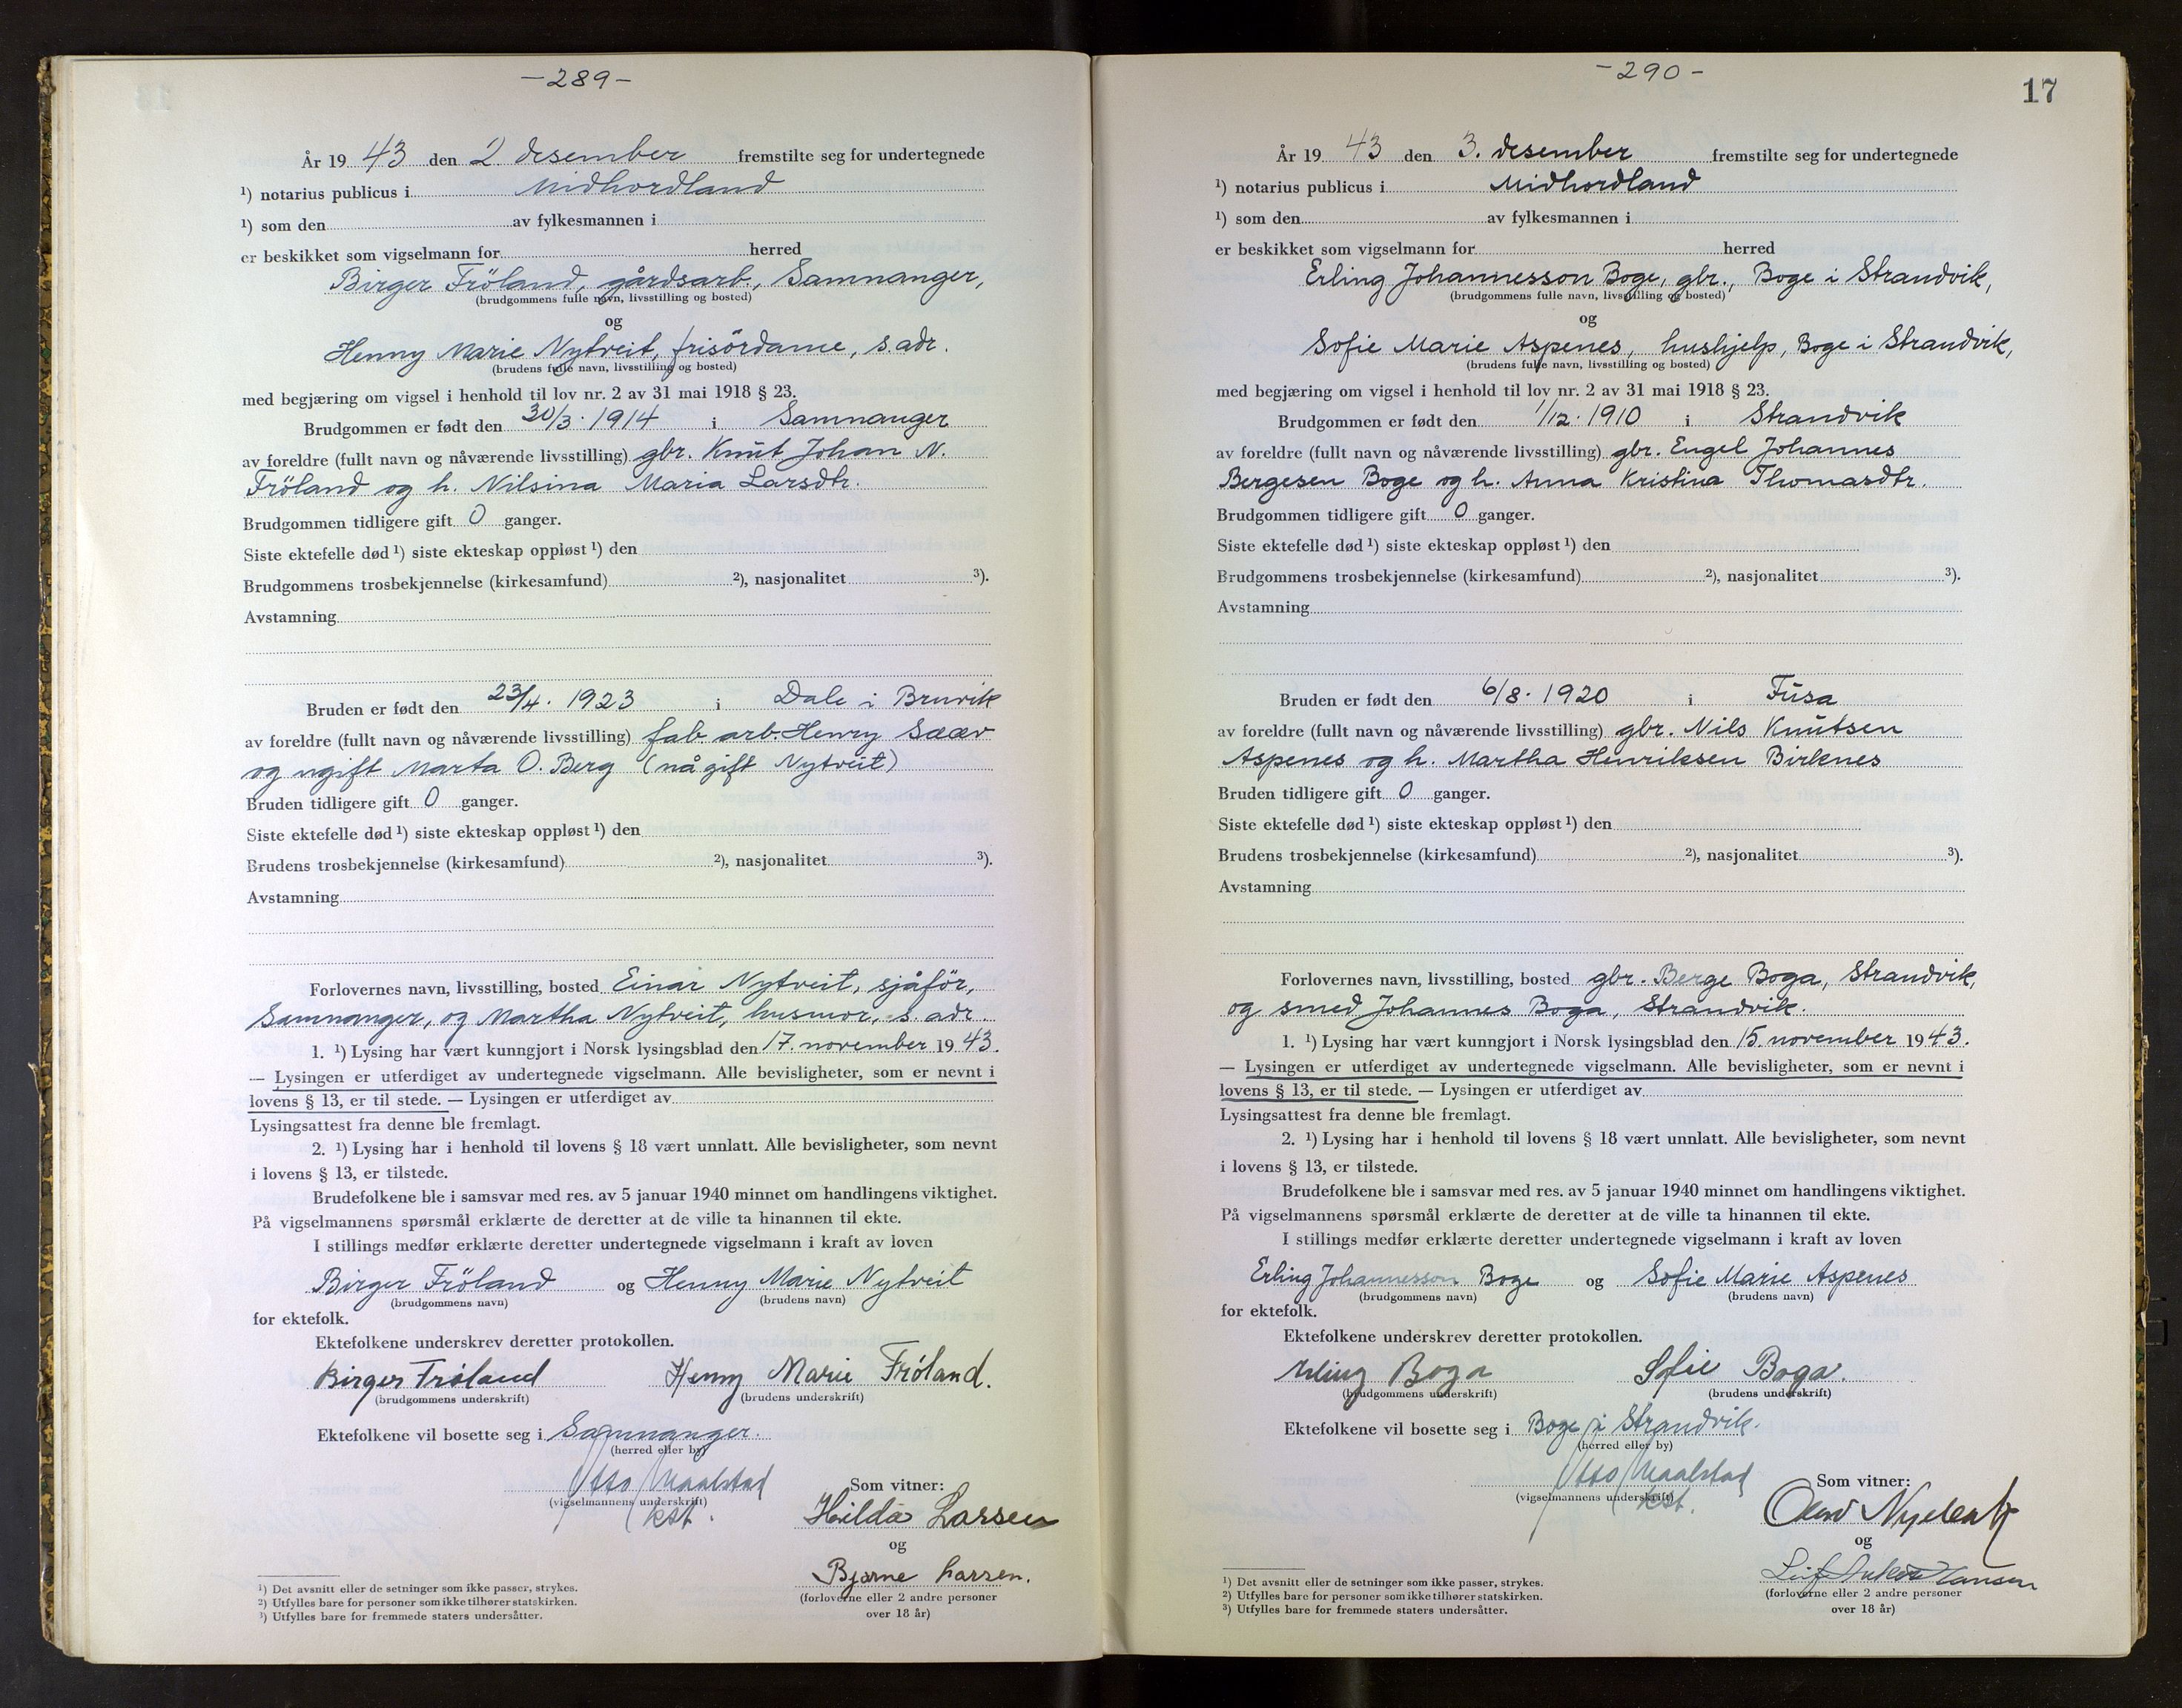 -289-
År 19 43 den 2. desember fremstilte seg for undertegnede
¹) notarius publicus i Midhordland
¹) som den av fylkesmannen i
er beskikket som vigselmann for herred
Birger Fröland, gårdsarb., Samnanger,
(brudgommens fulle navn, livsstilling og bosted)
og
Henny Marie Nytveit, frisördame, s. adr.
(brudens fulle navn, livsstilling og bosted)
med begjæring om vigsel i henhold til lov nr. 2 av 31 mai 1918 § 23.
Brudgommen er født den 30/3. 1914 i Samnanger
av foreldre (fullt navn og nåværende livsstilling) gbr. Knut Johan N.
Fröland og h. Nilsina Maria Larsdtr.
Brudgommen tidligere gift 0 ganger.
Siste ektefelle død ¹) siste ekteskap oppløst ¹) den
Brudgommens trosbekjennelse (kirkesamfund) ²), nasjonalitet ³).
Avstamning
Bruden er født den 23/4. 1923 i Dale i Bruvik
av foreldre (fullt navn og nåværende livsstilling) fab. arb. Henry
og ugift Marta O. Berg (nå gift Nytveit)
Bruden tidligere gift 0 ganger.
Siste ektefelle død ¹) siste ekteskap oppløst ¹) den
Brudens trosbekjennelse (kirkesamfund) ²), nasjonalitet ³).
Avstamning
Forlovernes navn, livsstilling, bosted Einar Nytveit, sjåför,
Samnanger, og Martha Nytveit, husmor, s. adr.
1. ¹) Lysing har vært kunngjort i Norsk lysingsblad den 17. november 19 43.
— Lysingen er utferdiget av undertegnede vigselmann. Alle bevisligheter, som er nevnt i
lovens § 13, er til stede. — Lysingen er utferdiget av
Lysingsattest fra denne ble fremlagt.
2. ¹) Lysing har i henhold til lovens § 18 vært unnlatt. Alle bevisligheter, som nevnt
i lovens § 13, er tilstede.
Brudefolkene ble i samsvar med res. av 5 januar 1940 minnet om handlingens viktighet.
På vigselmannens spørsmål erklærte de deretter at de ville ta hinannen til ekte.
I stillings medfør erklærte deretter undertegnede vigselmann i kraft av loven
Birger Fröland og Henny Marie Nytveit
(brudgommens navn) (brudens navn)
for ektefolk.
Ektefolkene underskrev deretter protokollen.
Birger Frøland Henny Marie Frøland.
(brudgommens underskrift) (brudens underskrift)
Ektefolkene vil bosette seg i Samnanger.
(herred eller by)
Otto Maalstad
(vigselmannens underskrift)
kst.
Som vitner:
Hilda Larsen
og
Bjarne Larsen.
(forloverne eller 2 andre personer
over 18 år)
¹) Det avsnitt eller de setninger som ikke passer, strykes.
²) Utfylles bare for personer som ikke tilhører statskirken.
³) Utfylles bare for fremmede staters undersåtter.
-290-
17
År 19 43 den 3. desember fremstilte seg for undertegnede
¹) notarius publicus i Midhordland
¹) som den av fylkesmannen i
er beskikket som vigselmann for herred
Erling Johannesson Boge, gbr., Boge i Strandvik,
(brudgommens fulle navn, livsstilling og bosted)
og
Sofie Marie Aspenes, hushjelp, Boge i Strandvik,
(brudens fulle navn, livsstilling og bosted)
med begjæring om vigsel i henhold til lov nr. 2 av 31 mai 1918 § 23.
Brudgommen er født den 1/12. 1910 i Strandvik
av foreldre (fullt navn og nåværende livsstilling) gbr. Engel Johannes
Bergesen Boge og h. Anna Kristina Thomasdtr.
Brudgommen tidligere gift 0 ganger.
Siste ektefelle død ¹) siste ekteskap oppløst ¹) den
Brudgommens trosbekjennelse (kirkesamfund) ²), nasjonalitet ³).
Avstamning
Bruden er født den 6/8. 1920 i Fusa
av foreldre (fullt navn og nåværende livsstilling) gbr. Nils Knutsen
Aspenes og h. Martha Henriksen Birknes
Bruden tidligere gift 0 ganger.
Siste ektefelle død ¹) siste ekteskap oppløst ¹) den
Brudens trosbekjennelse (kirkesamfund) ²), nasjonalitet ³).
Avstamning
Forlovernes navn, livsstilling, bosted gbr. Berge Boga, Strandvik,
og smed Johannes Boga, Strandvik.
1. ¹) Lysing har vært kunngjort i Norsk lysingsblad den 15. november 19 43.
— Lysingen er utferdiget av undertegnede vigselmann. Alle bevisligheter, som er nevnt i
lovens § 13, er til stede. — Lysingen er utferdiget av
Lysingsattest fra denne ble fremlagt.
2. ¹) Lysing har i henhold til lovens § 18 vært unnlatt. Alle bevisligheter, som nevnt
i lovens § 13, er tilstede.
Brudefolkene ble i samsvar med res. av 5 januar 1940 minnet om handlingens viktighet.
På vigselmannens spørsmål erklærte de deretter at de ville ta hinannen til ekte.
I stillings medfør erklærte deretter undertegnede vigselmann i kraft av loven
Erling Johannesson Boge og Sofie Marie Aspenes
(brudgommens navn) (brudens navn)
for ektefolk.
Ektefolkene underskrev deretter protokollen.
Erling Boga Sofie Boga.
(brudgommens underskrift) (brudens underskrift)
Ektefolkene vil bosette seg i Boge i Strandvik.
(herred eller by)
Otto Maalstad
(vigselmannens underskrift)
kst.
Som vitner:
og
Leif Hansen
(forloverne eller 2 andre personer
over 18 år)
¹) Det avsnitt eller de setninger som ikke passer, strykes.
²) Utfylles bare for personer som ikke tilhører statskirken.
³) Utfylles bare for fremmede staters undersåtter.